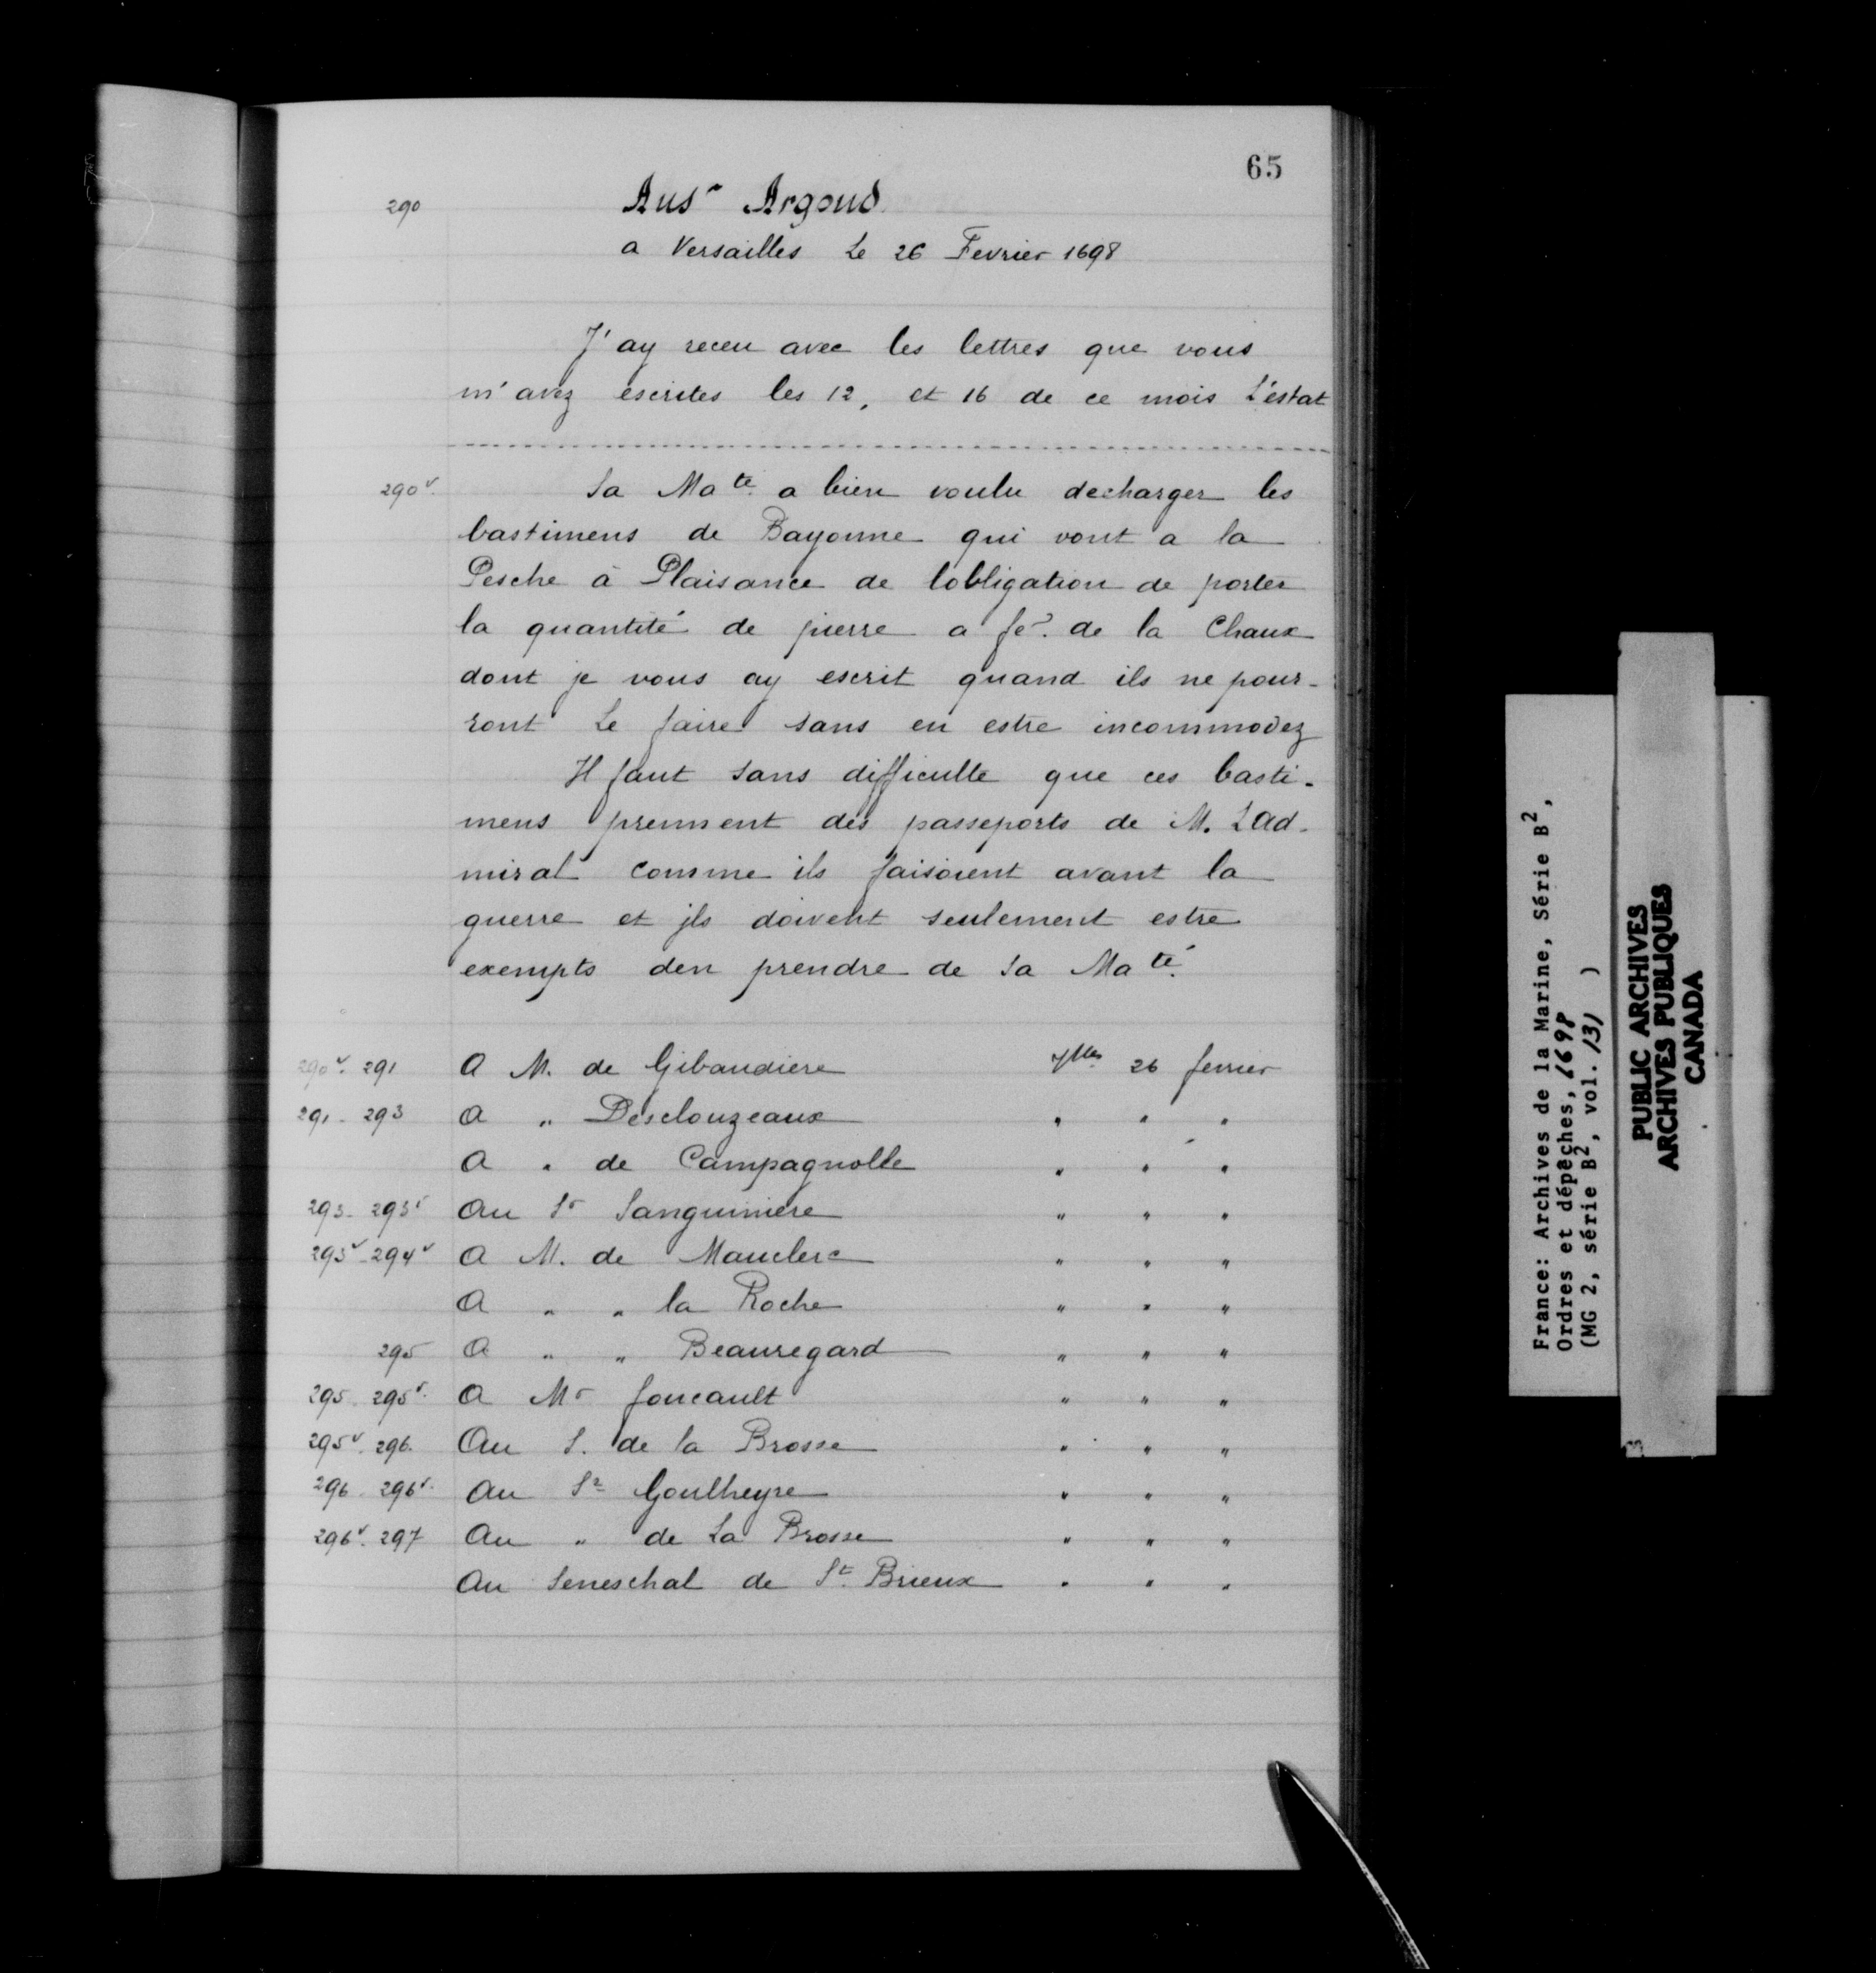 65
290 Aus r Argoud
a Versailles Le 26 Fevrier 1698
J'ay receu avec les lettres que vous
m'avez escrites les 12, et 16 de ce mois L'éstat
290 v. Sa Ma té a bien voulu decharger les
bastimens de Bayonne qui vont a la
Pesche à Plaisance de lobligation de porter
la quantité de pierre a fe. de la Chaux
dont je vous ay escrit quand ils ne pour-
ront Le faire sans en estre incommodez
Il faut sans difficulte que ces basti-
mens prennent des passeports de M. Lad-
miral comme ils faisoient avant la
guerre et jls doivent seulement estre
exempts den prendre de Sa Ma té.
290 v. 291 A M. de Gibaudiere Vlles 26 fevrier
291 - 293 A " Desclouzeaux " " "
A " de Campagnolle " " "
293 - 293 v Au Sr Sanguiniere " " "
293 v - 294 v A M. de Mauclerc " " "
A " " la Roche " " "
295 A " " Beauregard " " "
295 - 295 v. A Mr foucault " " "
295 v. 296. Au S. de la Brosse " " "
296 - 296 v. Au Sr Goulheyre " " "
296 v. 297 Au " de La Brosse " " "
Au Seneschal de St. Brieux " " "
France: Archives de la Marine, Série B2,
Ordres et dépêches, 1698
(MG 2, série B2, vol. 131 )
PUBLIC ARCHIVES
ARCHIVES PUBLIQUES
CANADA